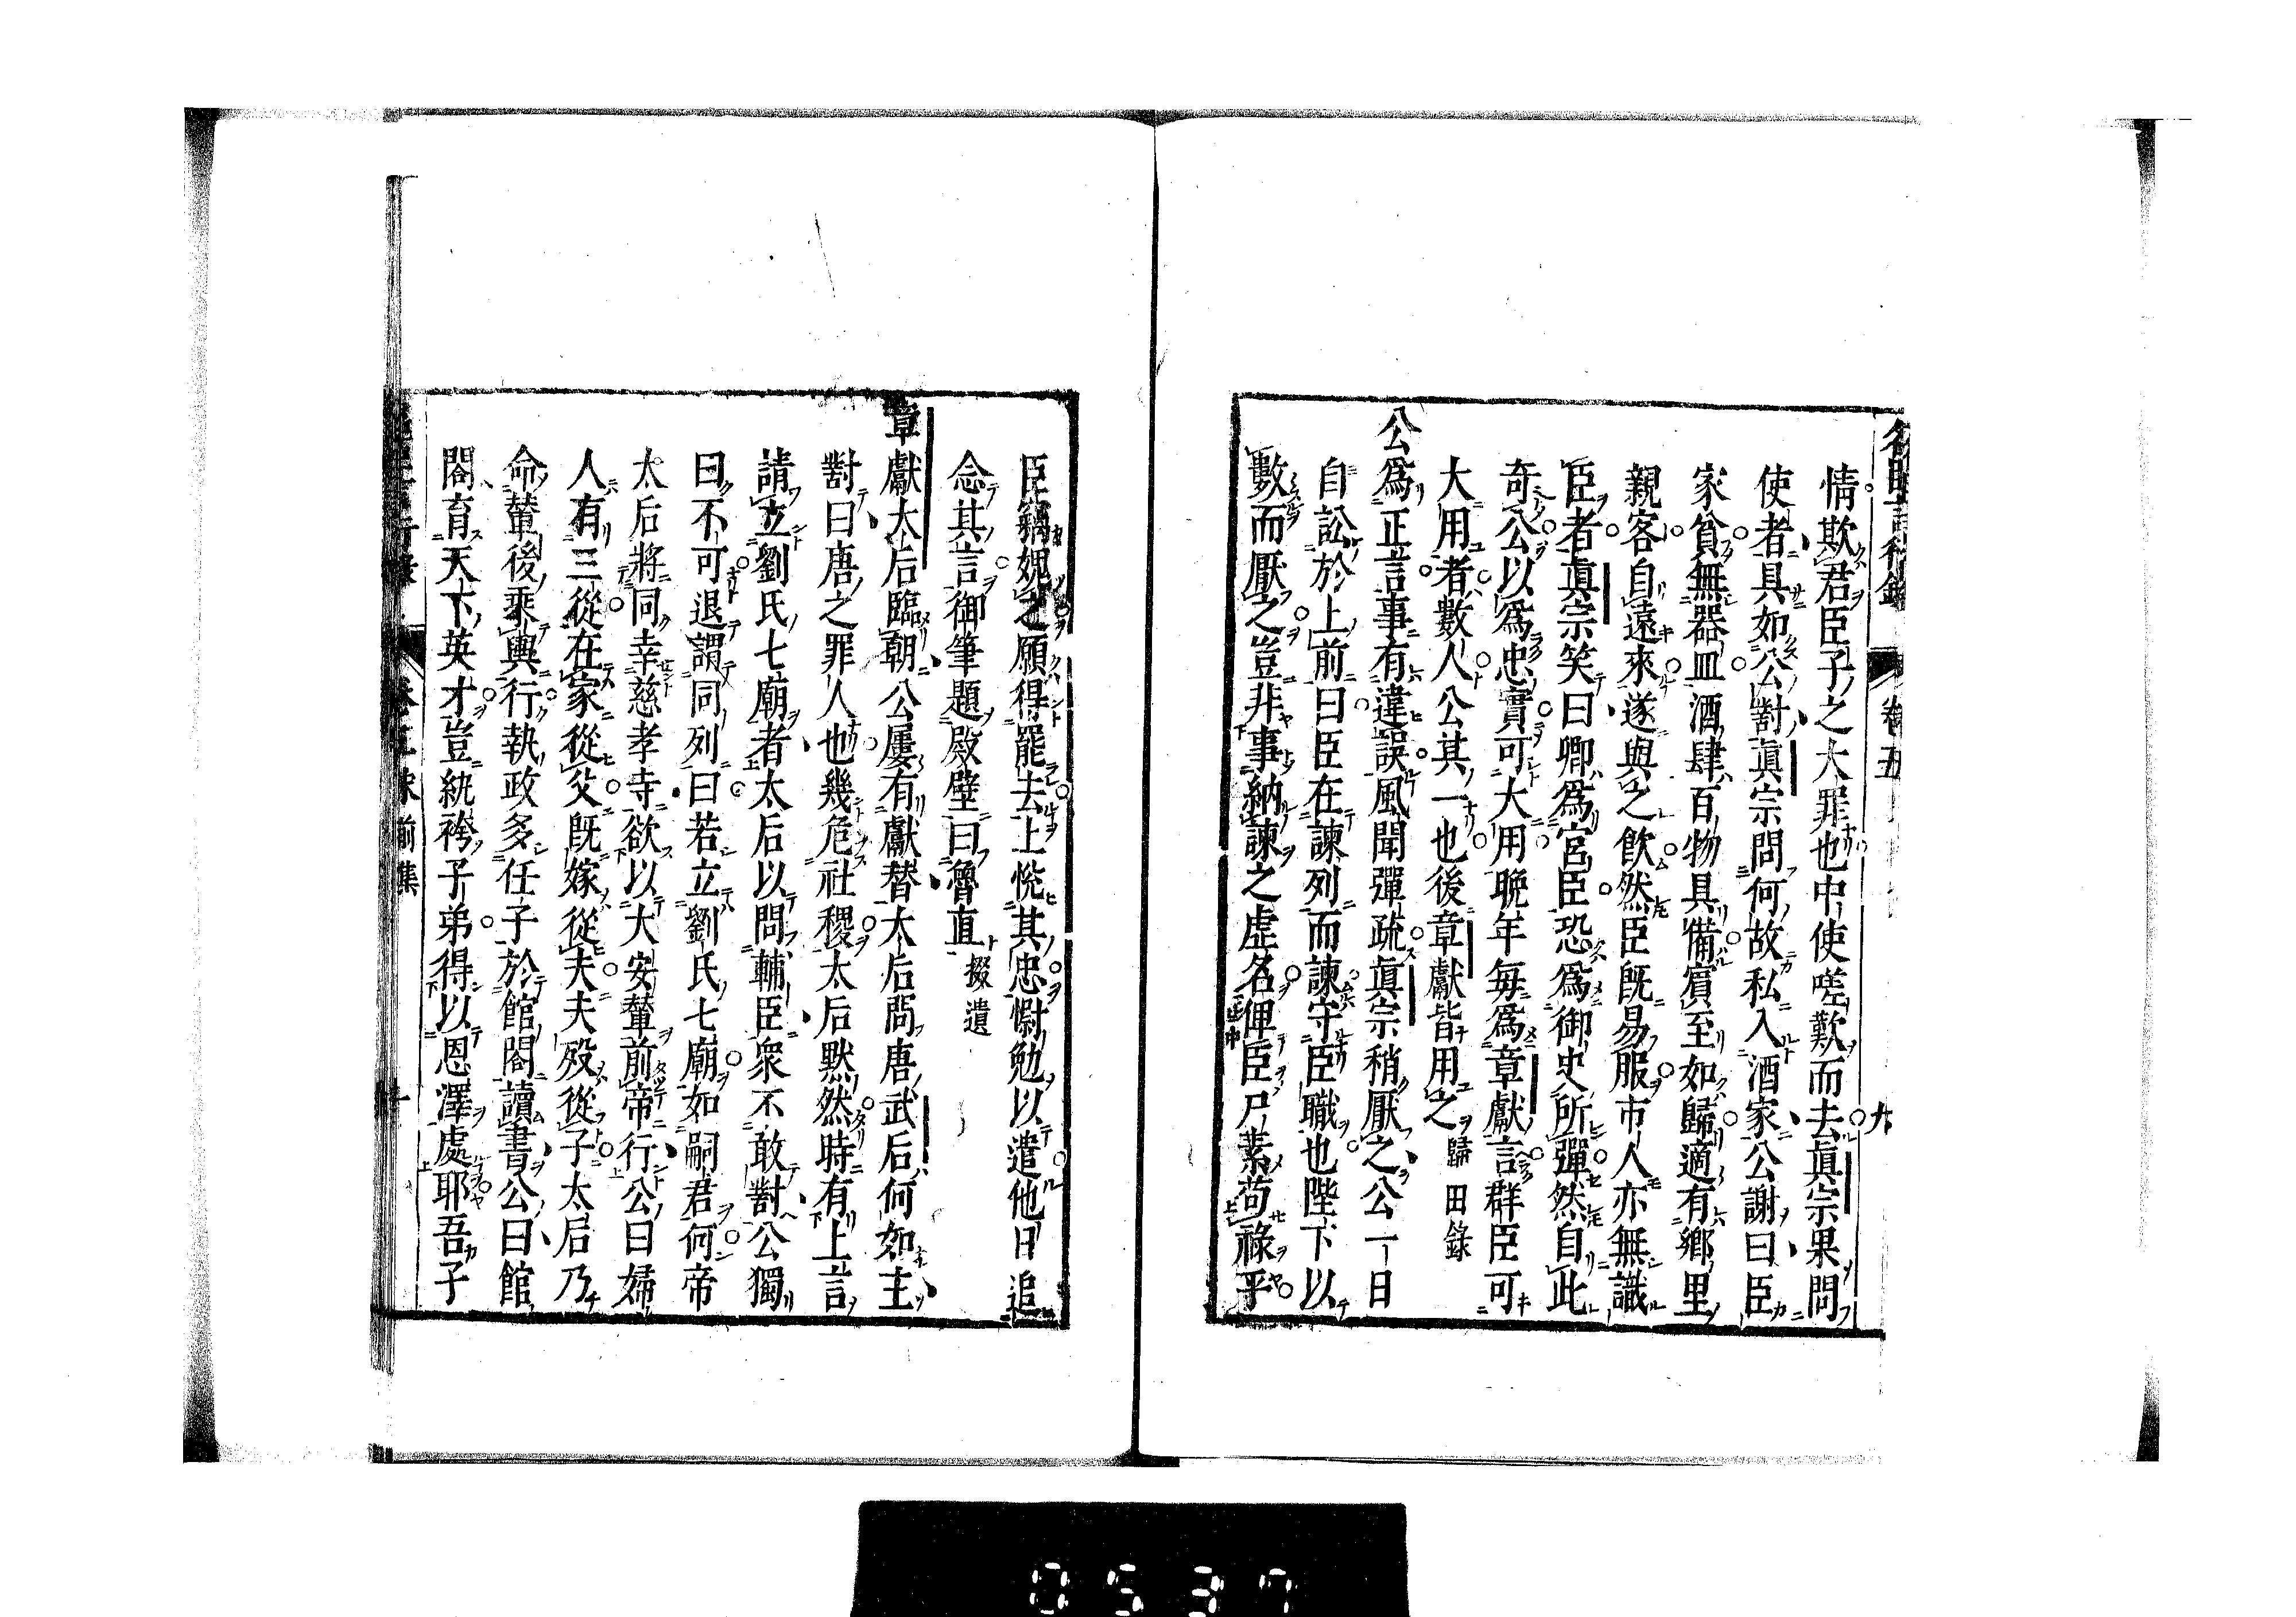 名臣言行錄 卷五 九
情欺君臣子之大罪也中使嗟歎而去眞宗果問
使者具如公對眞宗問何故私入酒家公謝曰臣
家貧無器皿酒肆百物具備賓至如歸適有鄉里
親客自遠來遂與之飲然臣旣易服市人亦無識
臣者眞宗笑曰卿爲宮臣恐爲御史所彈然自此
奇公以爲忠實可大用晩年每爲章獻言群臣可
大用者數人公其一也後章獻皆用之 歸田錄
公爲正言事有違誤風聞彈疏眞宗稍厭之公一日
自訟於上前曰臣在諫列而諫守臣職也陛下以
數而厭之豈非事納諫之虛名俾臣尸素苟祿乎
臣竊媿之願得罷去上悅其忠懇勉以遣他日追
念其言御筆題殿壁曰魯直 掇遺
章獻太后臨朝公屢有獻替太后問唐武后何如主
對曰唐之罪人也幾危社稷太后默然時有上言
請立劉氏七廟者太后以問輔臣衆不敢對公獨
曰不可退謂同列曰若立劉氏七廟如嗣君何帝
太后將同幸慈孝寺欲以大安輦前帝行公曰婦
人有三從在家從父旣嫁從夫夫歿從子太后乃
命輦後乘輿行執政多任子於館閣讀書公曰館
閣育天下英才豈紈袴子弟得以恩澤處耶吾子
卷五 前集
0537